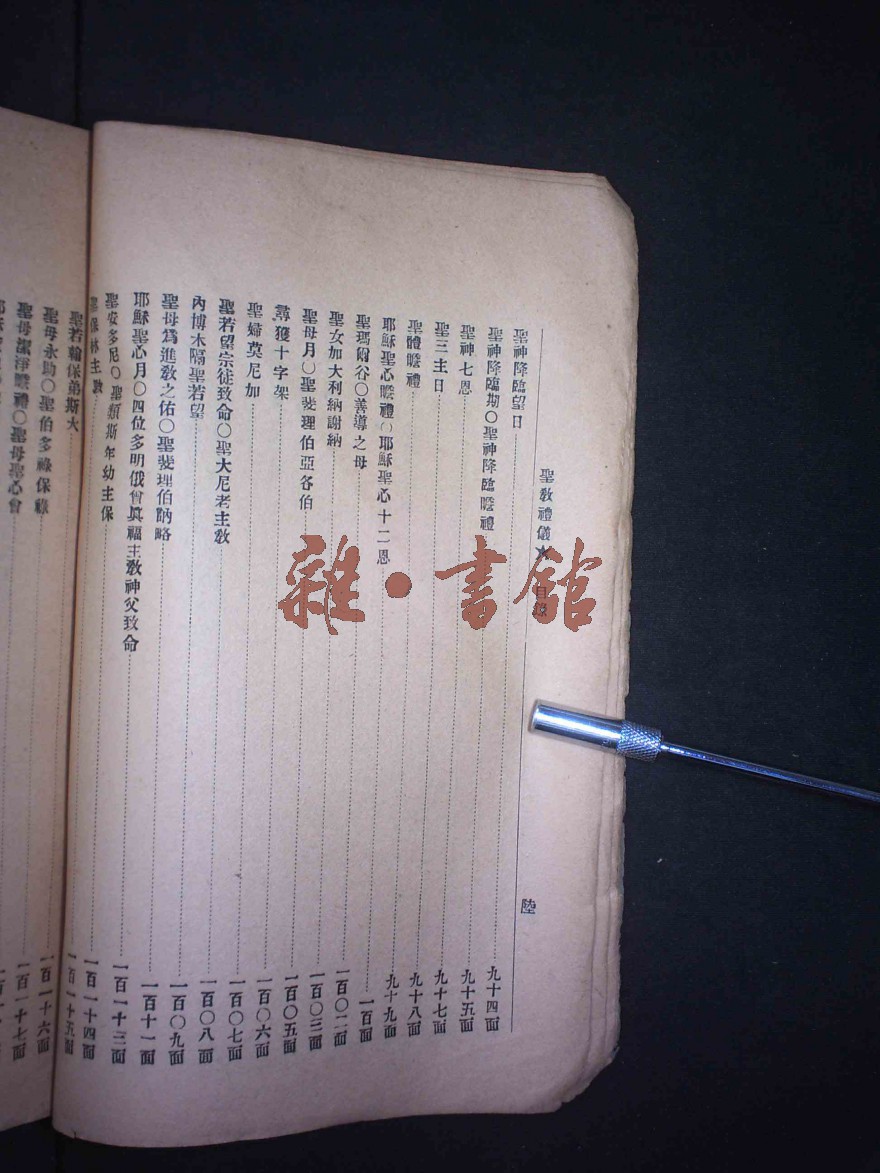 聖教禮儀★目錄
陸
聖神降臨望日 九十四面
聖神降臨期〇聖神降臨瞻禮 九十五面
聖神七恩 九十七面
聖三主日 九十八面
聖體瞻禮 九十九面
耶穌聖心瞻禮〇耶穌聖心十二恩 一百面
聖瑪爾谷〇善導之母 一百〇二面
聖女加大利納謝納 一百〇三面
聖母月〇聖斐理伯亞各伯 一百〇五面
尋獲十字架 一百〇六面
聖婦莫尼加 一百〇七面
聖若望宗徒致命〇聖大尼老主教 一百〇八面
內博木隔聖若望 一百〇九面
聖母爲進教之佑〇聖斐理伯訥略 一百十一面
耶穌聖心月〇四位多明俄會眞福主教神父致命 一百十三面
聖安多尼〇聖類斯年幼主保 一百十四面
聖保林主教 一百十五面
聖若翰保弟斯大 一百十六面
聖母永助〇聖伯多祿保祿 一百十七面
聖母潔淨瞻禮〇聖母聖心會
雜·書館